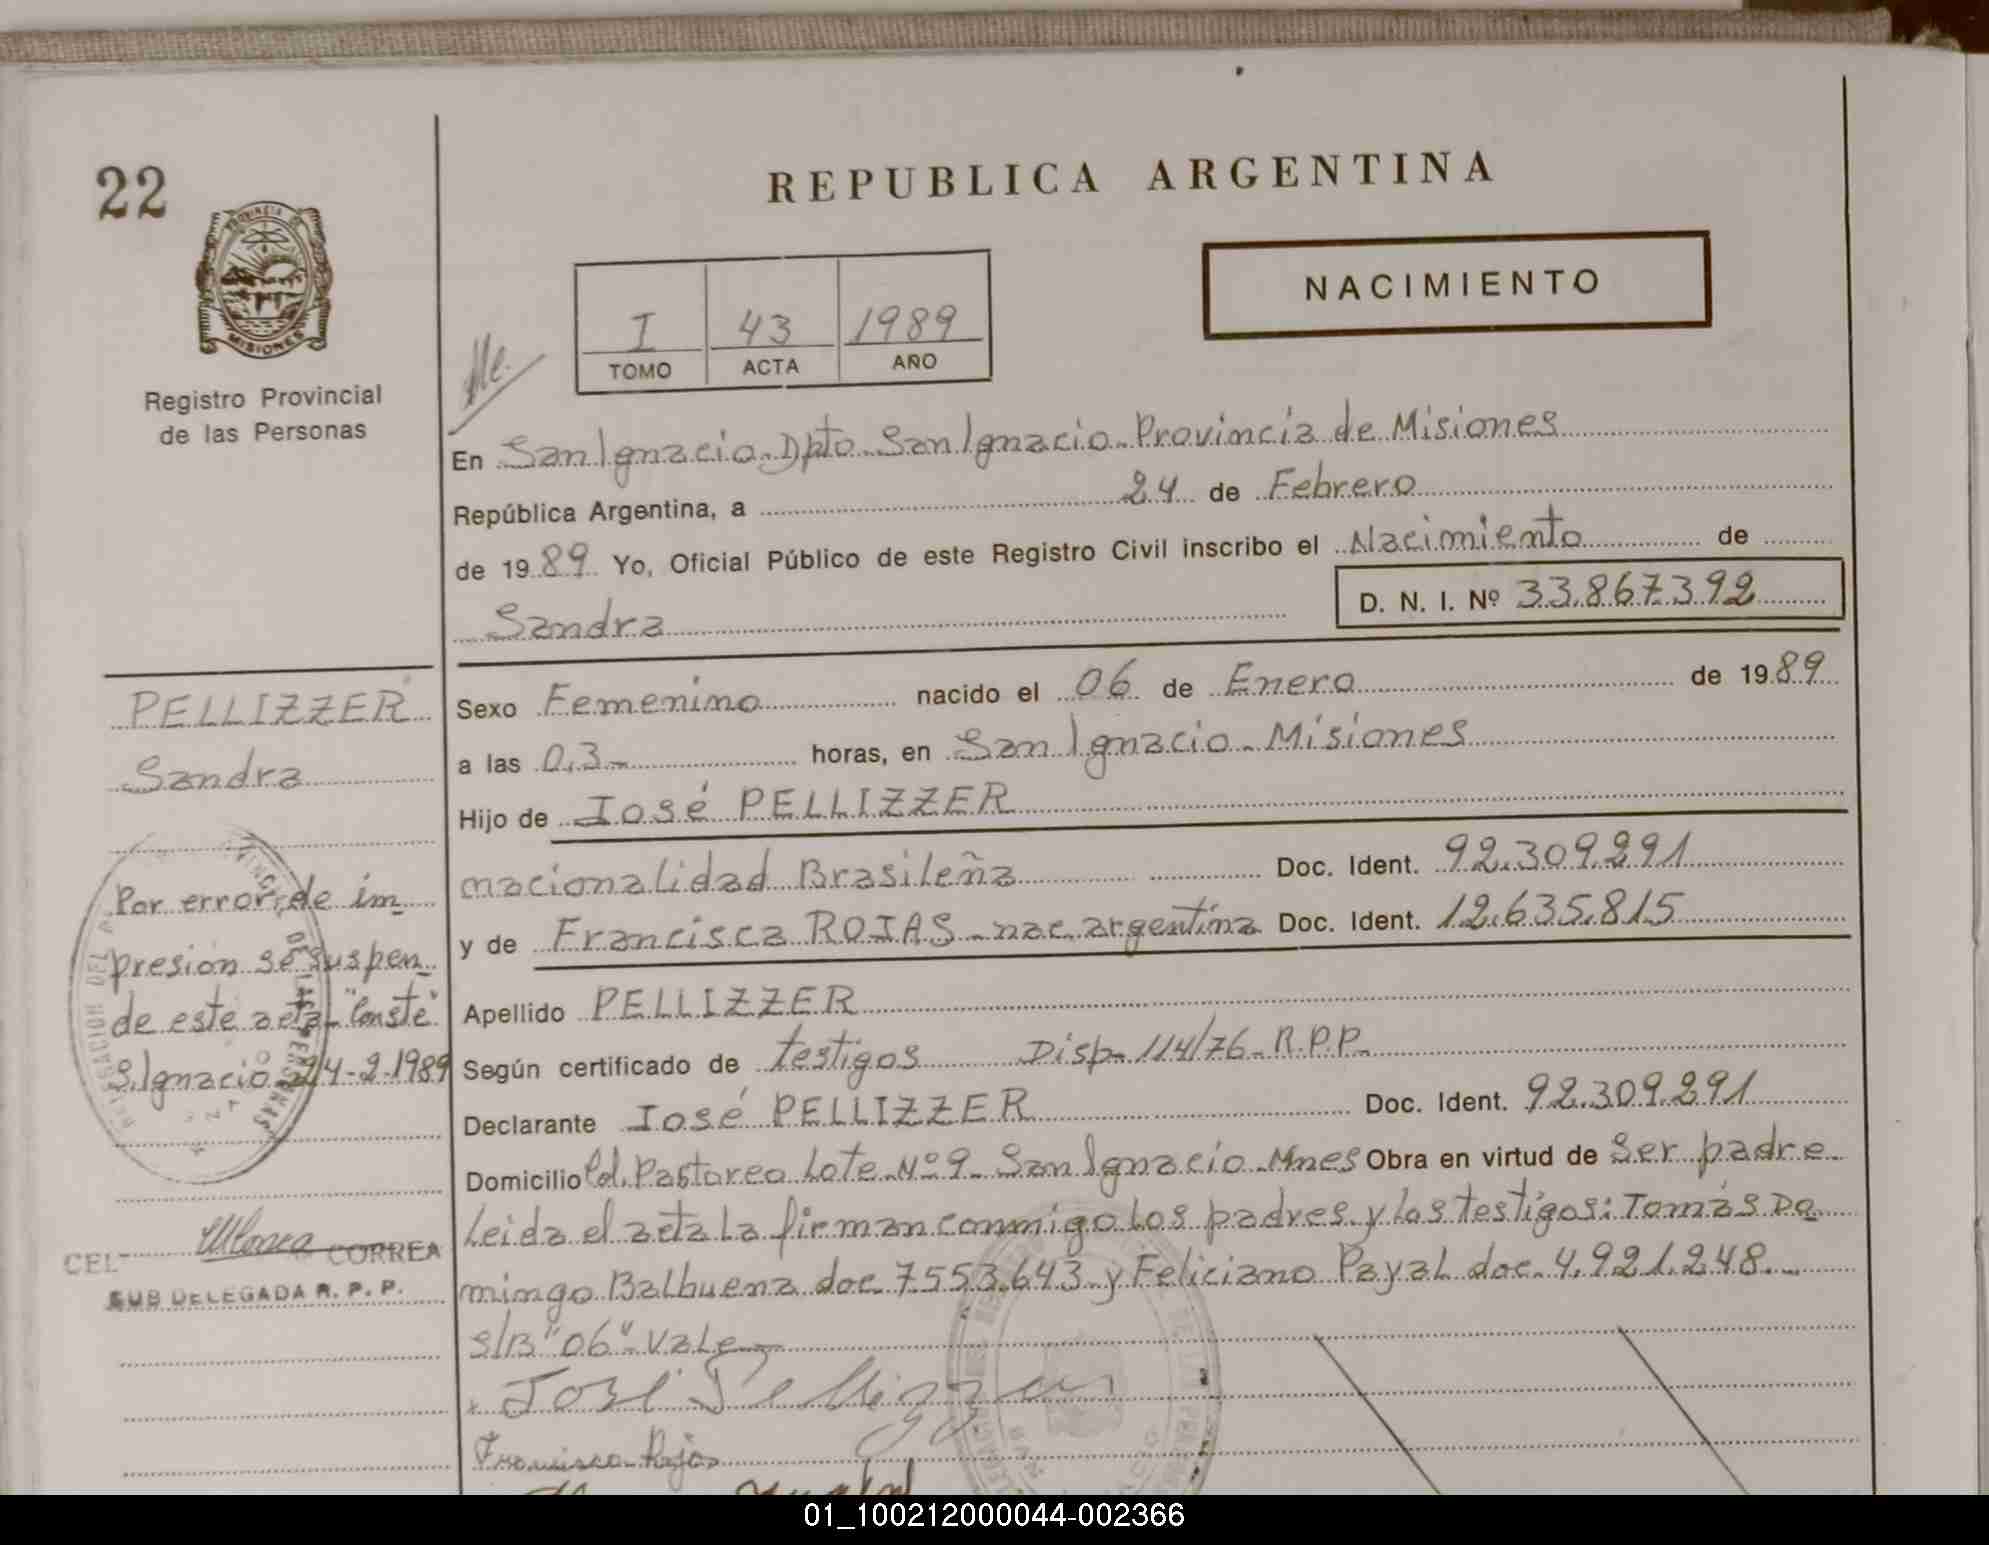 22
REPUBLICA ARGENTINA
PROVINCIA DE
MISIONES
NACIMIENTO
I 43 1989
TOMO ACTA AÑO
Registro Provincial
de las Personas
En San Ignacio Dpto. San Ignacio - Provincia de Misiones
República Argentina, a 24 de Febrero
de 19 89 Yo, Oficial Público de este Registro Civil inscribo el Nacimiento de
Sandra
D. N. I. Nº 33.867.392
PELLIZZER
Sandra
Por error de im-
presión se suspen-
de este acta "Conste"
S. Ignacio 24-2-1989
CEL CORREA
SUB DELEGADA R. P. P.
Sexo Femenino nacido el 06 de Enero de 19 89
a las 03- horas, en San Ignacio - Misiones
Hijo de José PELLIZZER
nacionalidad Brasileña Doc. Ident. 92.309.291
y de Francisca ROJAS - nac. argentina Doc. Ident. 12.635.815
Apellido PELLIZZER
Según certificado de testigos Disp. 114/76 - R.P.P.
Declarante José PELLIZZER Doc. Ident. 92.309.291
Domicilio Col. Pastoreo Lote Nº 9 - San Ignacio - Mnes Obra en virtud de Ser padre
Leida el acta la firman conmigo los padres y los testigos: Tomás Do
mingo Balbuena doc 7553.643 y Feliciano Payal doc. 4.921.248.-
s/B "06" Vale
José Pellizzer
Francisca Rojas
01_100212000044-002366